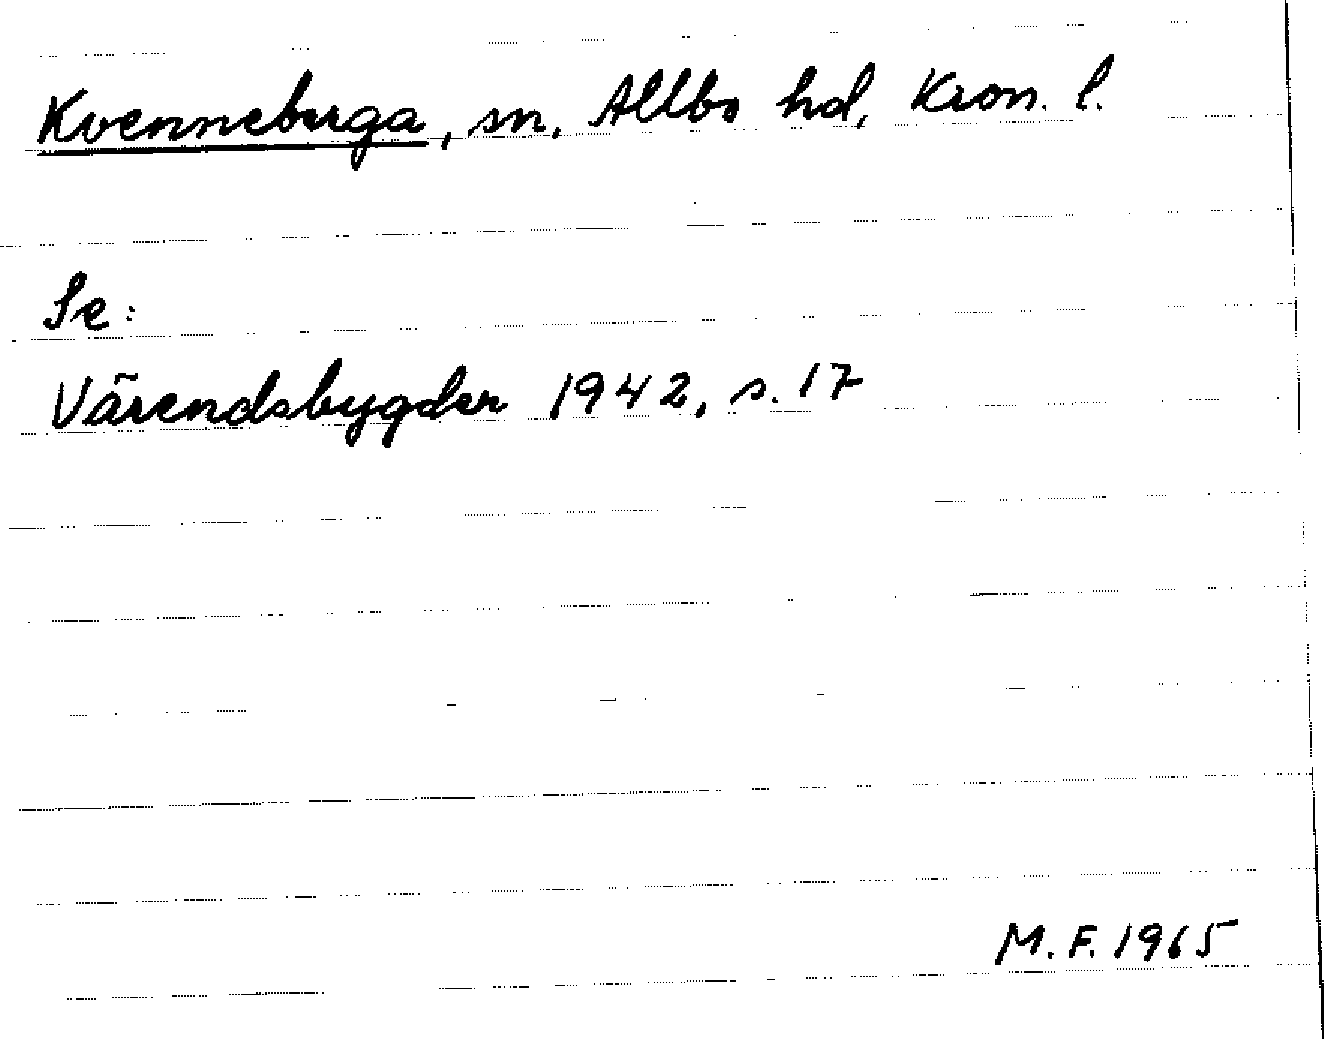 Kvenneberga, sn, Allbo hd, Kron. l.
Se:
Värendsbygder 1942, s. 17
M. F. 1965